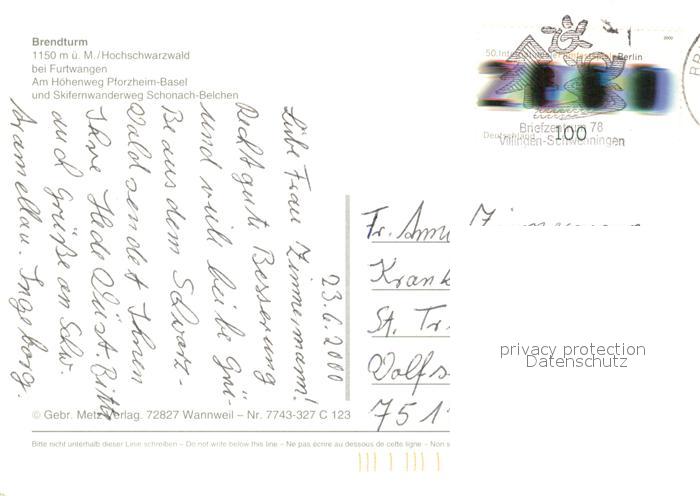 Brendturm
1150 m ü. M./Hochschwarzwald
bei Furtwangen
Am Höhenweg Pforzheim-Basel
und Skifernwanderweg Schonach-Belchen
50. Internationale Berlin
2000
Deutschland 100
Briefzentrum 78
Villingen-Schwenningen
23.6.2000
Liebe Frau Zimmermann!
Recht gute Besserung
und viele liebe Grü-
ße aus dem Schwarz-
wald sendet Ihnen
Ihre Hede Wüst. Bitte
auch Grüße an Schw.
Aramellau. Ingeborg.
Fr. Anne Zimmermann
Krank
St. Tr
Wolfs
751
privacy protection
Datenschutz
© Gebr. Metz Verlag. 72827 Wannweil – Nr. 7743-327 C 123
Bitte nicht unterhalb dieser Linie schreiben – Do not write below this line – Ne pas écrire au dessous de cette ligne – Non s